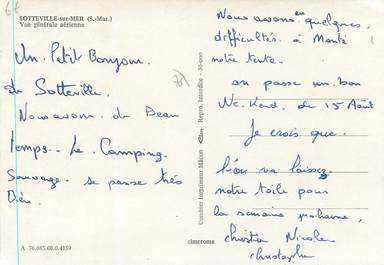 6€
SOTTEVILLE-sur-MER (S.-Mar.)
Vue générale aérienne
Un Petit Bonjour
de Sotteville.
Nous avons du Beau
temps. Le Camping
Sauvage se passe très
Bien.
A 76.683.00.0.4159
Combier Imprimeur Mâcon
Repro. Interdite - 30-000
cimcrome
Nous avons eu quelques
difficultés à Monté
notre tente.
on passe un bon
We.Kend. du 15 Août
Je crois que
l'on va laissez
notre toile pour
la semaine prohaine,
christian Nicole
christophe